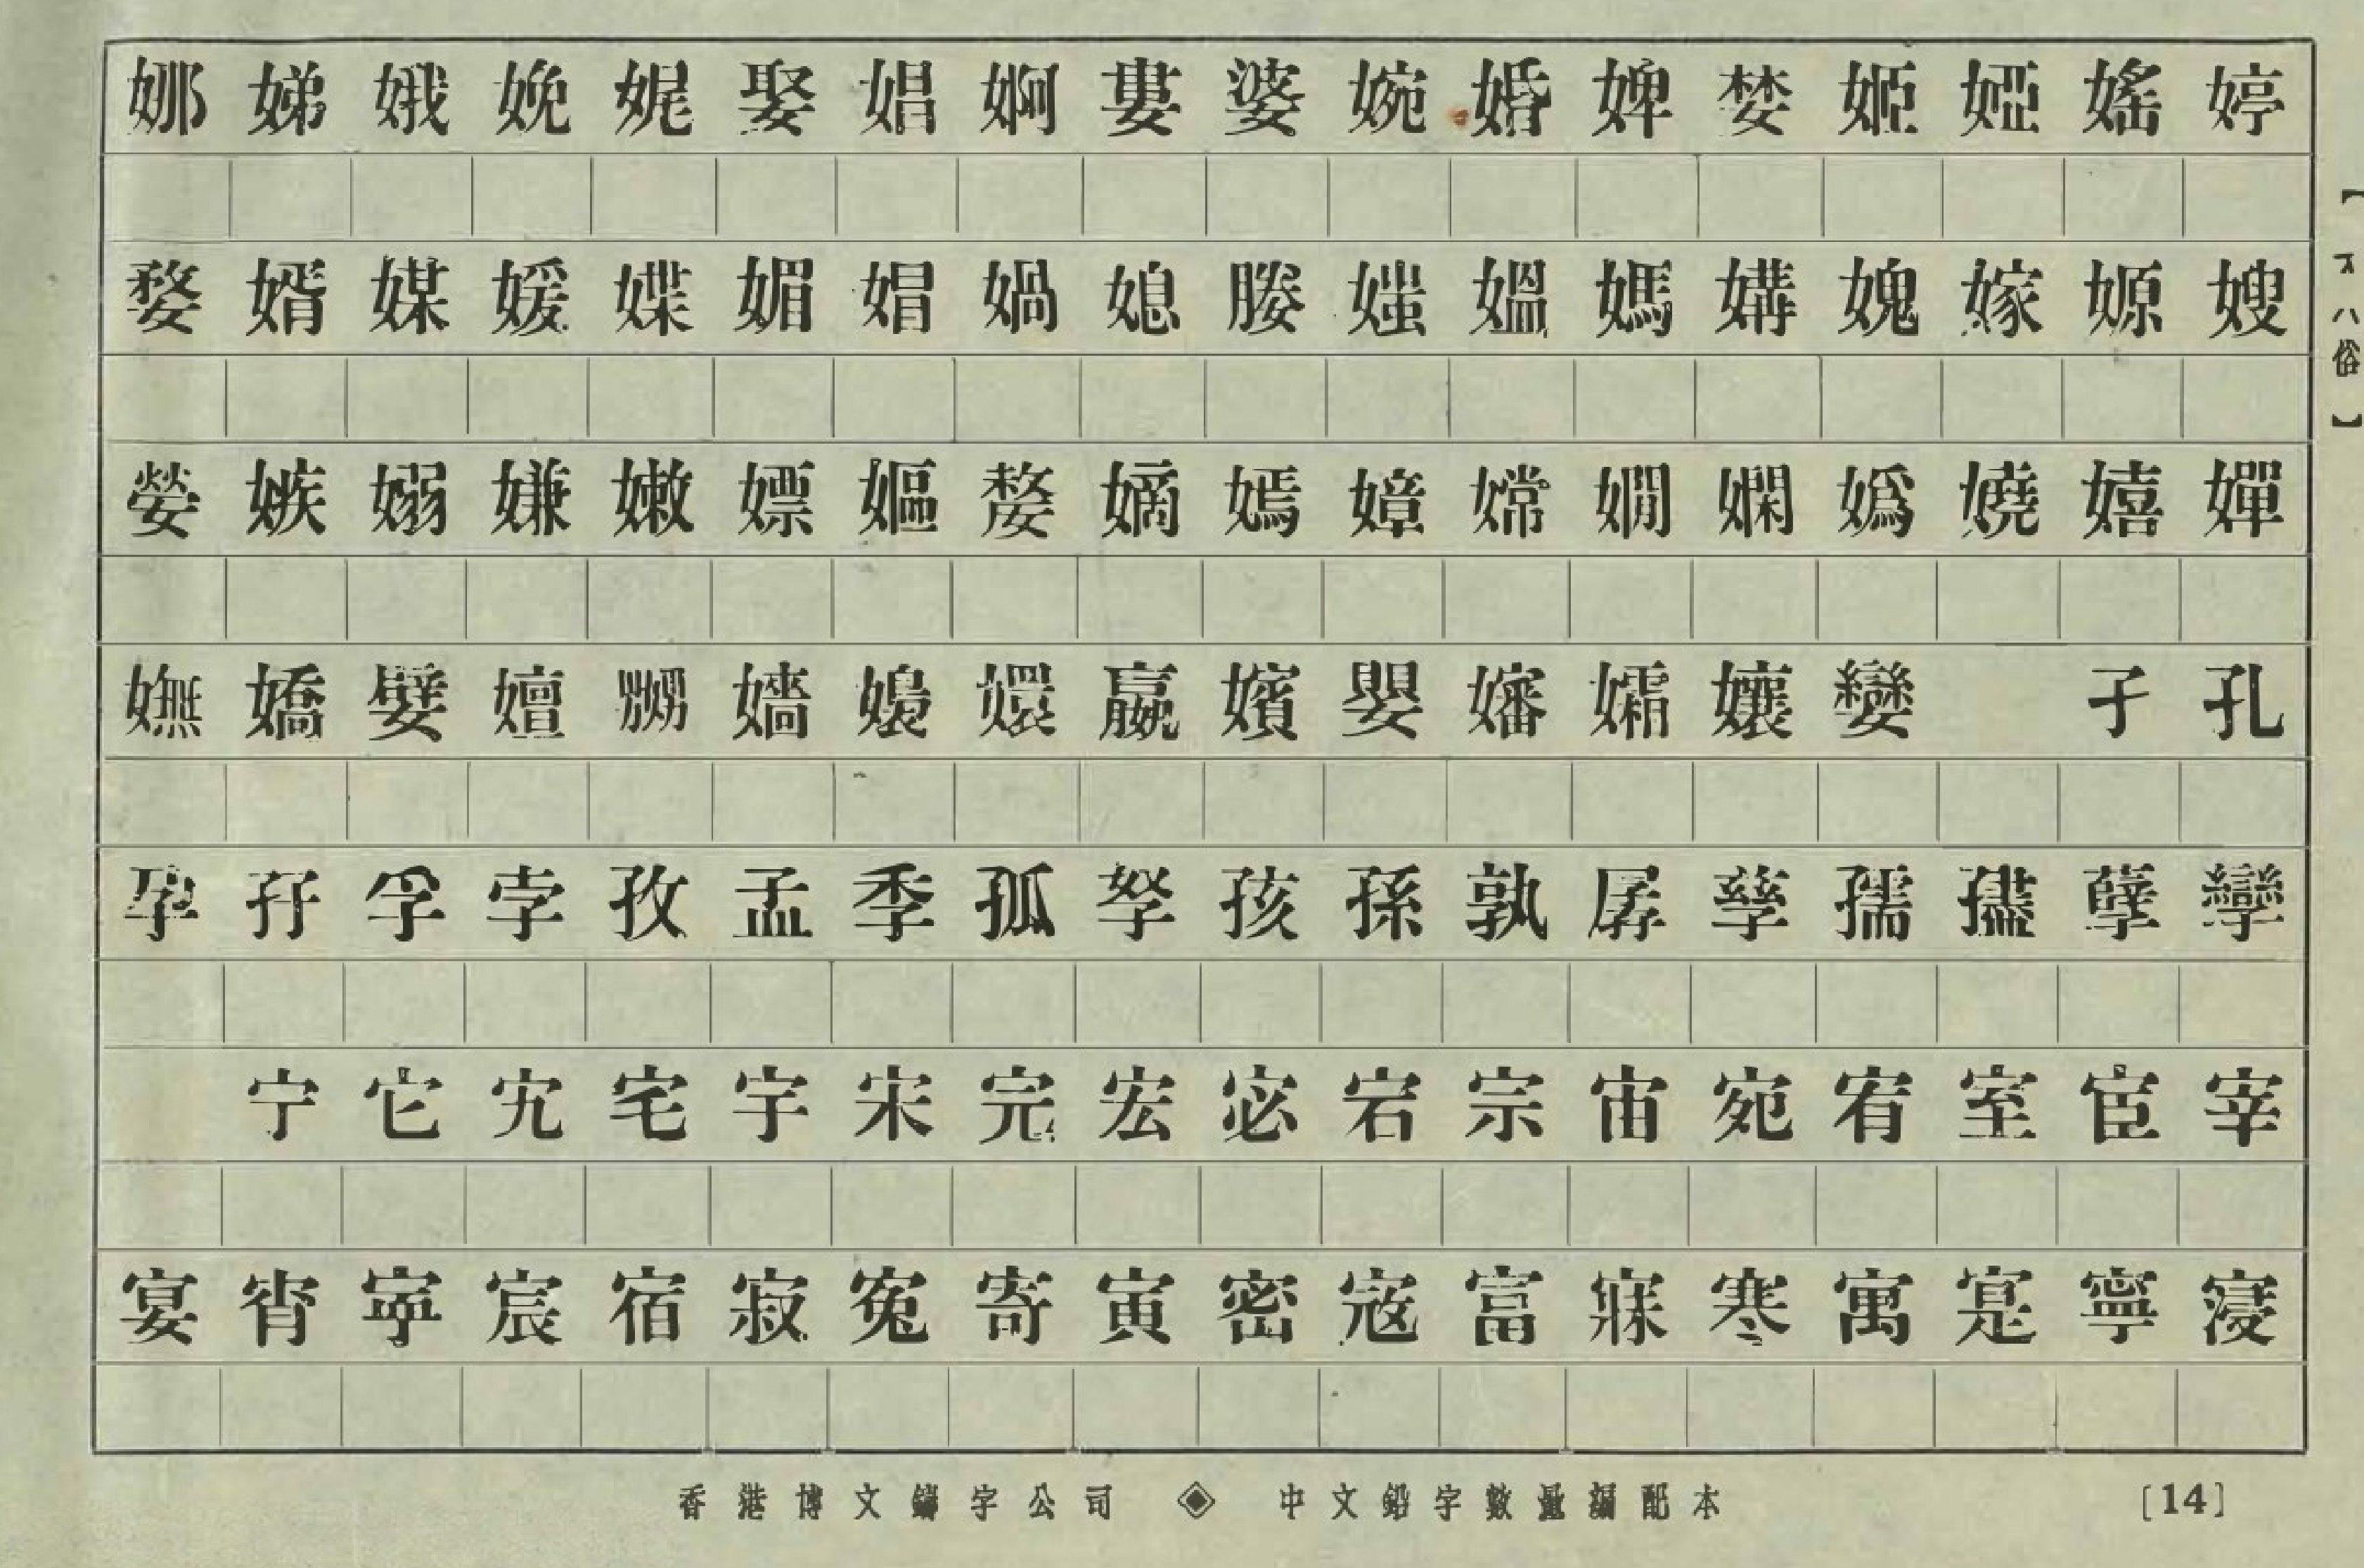 娜娣娥娩娓娶娼婀婁婆婉婚婢婪姬婭媱婷
婺婿媒媛媟媚媢媧媳媵媸媼媽媾媿嫁嫄嫂
嫈嫉嫋嫌嫩嫖嫗嫠嫡嫣嫜嫦嫺嫻嬀嬈嬉嬋
嫵嬌嬖嬗嬲嬙嬝嬛嬴嬪嬰嬸孀孃孌 孑孔
孕孖孚孛孜孟季孤孥孩孫孰孱孳孺孻孽孿
宁它宄宅宇宋完宏宓宕宗宙宛宥室宦宰
宴宵寕宸宿寂冤寄寅密寇富寐寒寓寔寧寖
香港博文鑄字公司 ◈ 中文鉛字數量編配本
[14]